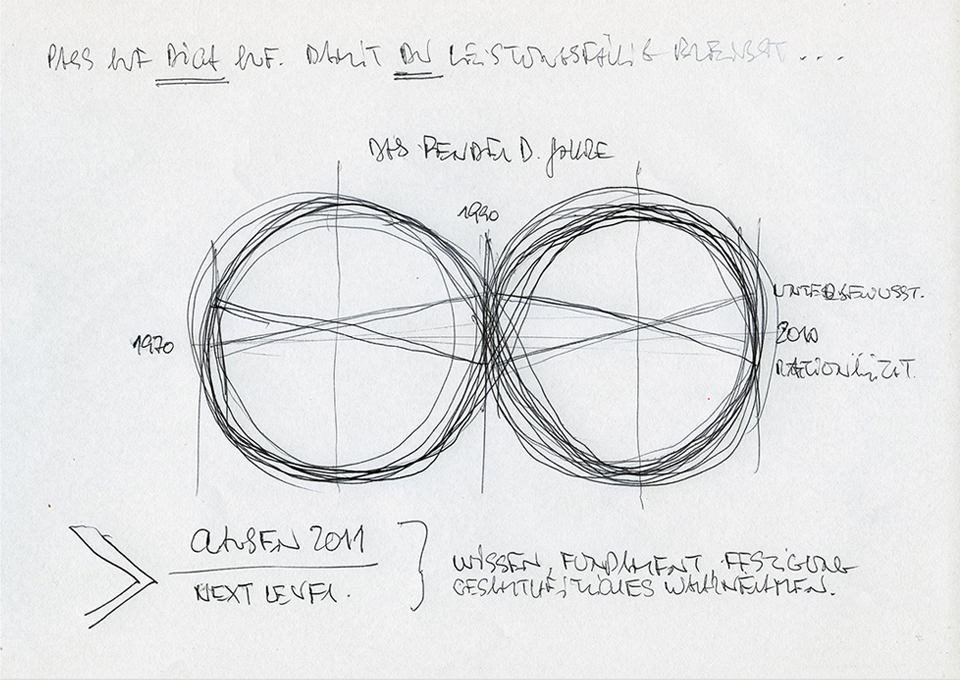 PASS AUF DICH AUF. DAMIT DU LEISTUNGSFÄHIG BLEIBST...
DAS PENDEL D. JAHRE
1990
UNTERBEWUSST.
1970
2010
RATIONALITÄT.
ACHSEN 2011
NEXT LEVEL.
WISSEN, FUNDAMENT, FESTIGUNG
GESAMTHEITLICHES WAHRNEHMEN.